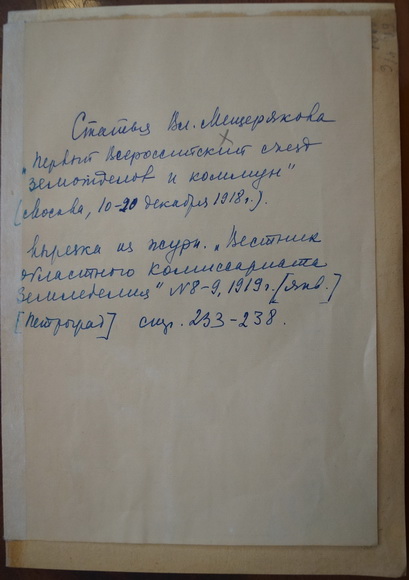 Статья Вл. Мещерякова
"Первый Всероссийский съезд
земотделов и коммун"
(Москва, 10-20 декабря 1918 г.).
вырезка из журн. „Вестник
областного комиссариата
Земледелия" N 8-9, 1919 г. [янв.]
[Петроград] стр. 233-238.